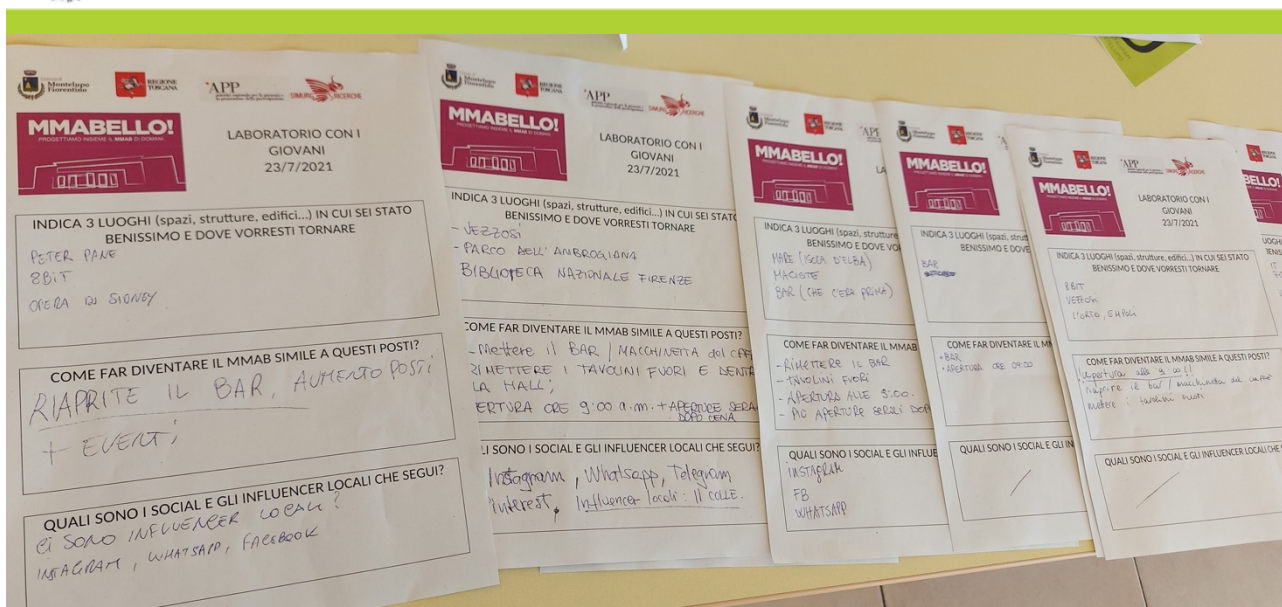 Comune di
Montelupo
Fiorentino
REGIONE
TOSCANA
APP
SIMURG RICERCHE
MMABELLO!
PROGETTIAMO INSIEME IL MMAB DI DOMANI
LABORATORIO CON I
GIOVANI
23/7/2021
INDICA 3 LUOGHI (spazi, strutture, edifici...) IN CUI SEI STATO
BENISSIMO E DOVE VORRESTI TORNARE
PETER PANE
8BIT
OPERA DI SIDNEY
COME FAR DIVENTARE IL MMAB SIMILE A QUESTI POSTI?
RIAPRITE IL BAR, AUMENTO POSTI
+ EVENTI
QUALI SONO I SOCIAL E GLI INFLUENCER LOCALI CHE SEGUI?
CI SONO INFLUENCER LOCALI?
INSTAGRAM, WHATSAPP, FACEBOOK
Montelupo
Fiorentino
REGIONE
TOSCANA
APP
SIMURG RICERCHE
MMABELLO!
PROGETTIAMO INSIEME IL MMAB DI DOMANI
LABORATORIO CON I
GIOVANI
23/7/2021
INDICA 3 LUOGHI (spazi, strutture, edifici...) IN CUI SEI STATO
BENISSIMO E DOVE VORRESTI TORNARE
- VEZZOSI
- PARCO DELL'AMBROGIANA
BIBLIOTECA NAZIONALE FIRENZE
COME FAR DIVENTARE IL MMAB SIMILE A QUESTI POSTI?
- Mettere il BAR / MACCHINETTA del CAFF
RIMETTERE I TAVOLINI FUORI E DENTR
LA HALL;
ERTURA ORE 9:00 a.m. + APERTURE SERA
DOPO CENA
LI SONO I SOCIAL E GLI INFLUENCER LOCALI CHE SEGUI?
Instagram, Whatsapp, Telegram
interest, Influencer locali: Il COLLE.
MMABELLO!
LA
INDICA 3 LUOGHI (spazi, strutture
BENISSIMO E DOVE VO
MARE (ISOLA D'ELBA)
MACISTE
BAR (CHE C'ERA PRIMA)
COME FAR DIVENTARE IL MMAB
- RIMETTERE IL BAR
- TAVOLINI FUORI
- APERTURA ALLE 9:00.
- PIÙ APERTURE SERALI DOP
QUALI SONO I SOCIAL E GLI INFLUE
INSTAGRAM
FB
WHATSAPP
MMABELLO!
INDICA 3 LUOGHI (spazi, strut
BENISSIMO E DOV
BAR
COME FAR DIVENTARE IL MM
• BAR
• APERTURA ORE 09:00
QUALI SONO I SOCIAL E GLI IN
MMABELLO!
LABORATORIO CON I
GIOVANI
23/7/2021
INDICA 3 LUOGHI (spazi, strutture, edifici...) IN CUI SEI STATO
BENISSIMO E DOVE VORRESTI TORNARE
8BIT
VEZZOSI
L'ORTO, EMPOLI
COME FAR DIVENTARE IL MMAB SIMILE A QUESTI POSTI?
Apertura alle 9
riaprire il bar / macchinetta del caffè
mettere i tavolini fuori
QUALI SONO I SOCIAL E GLI INFLUENCER LOCALI CHE
BELLO!